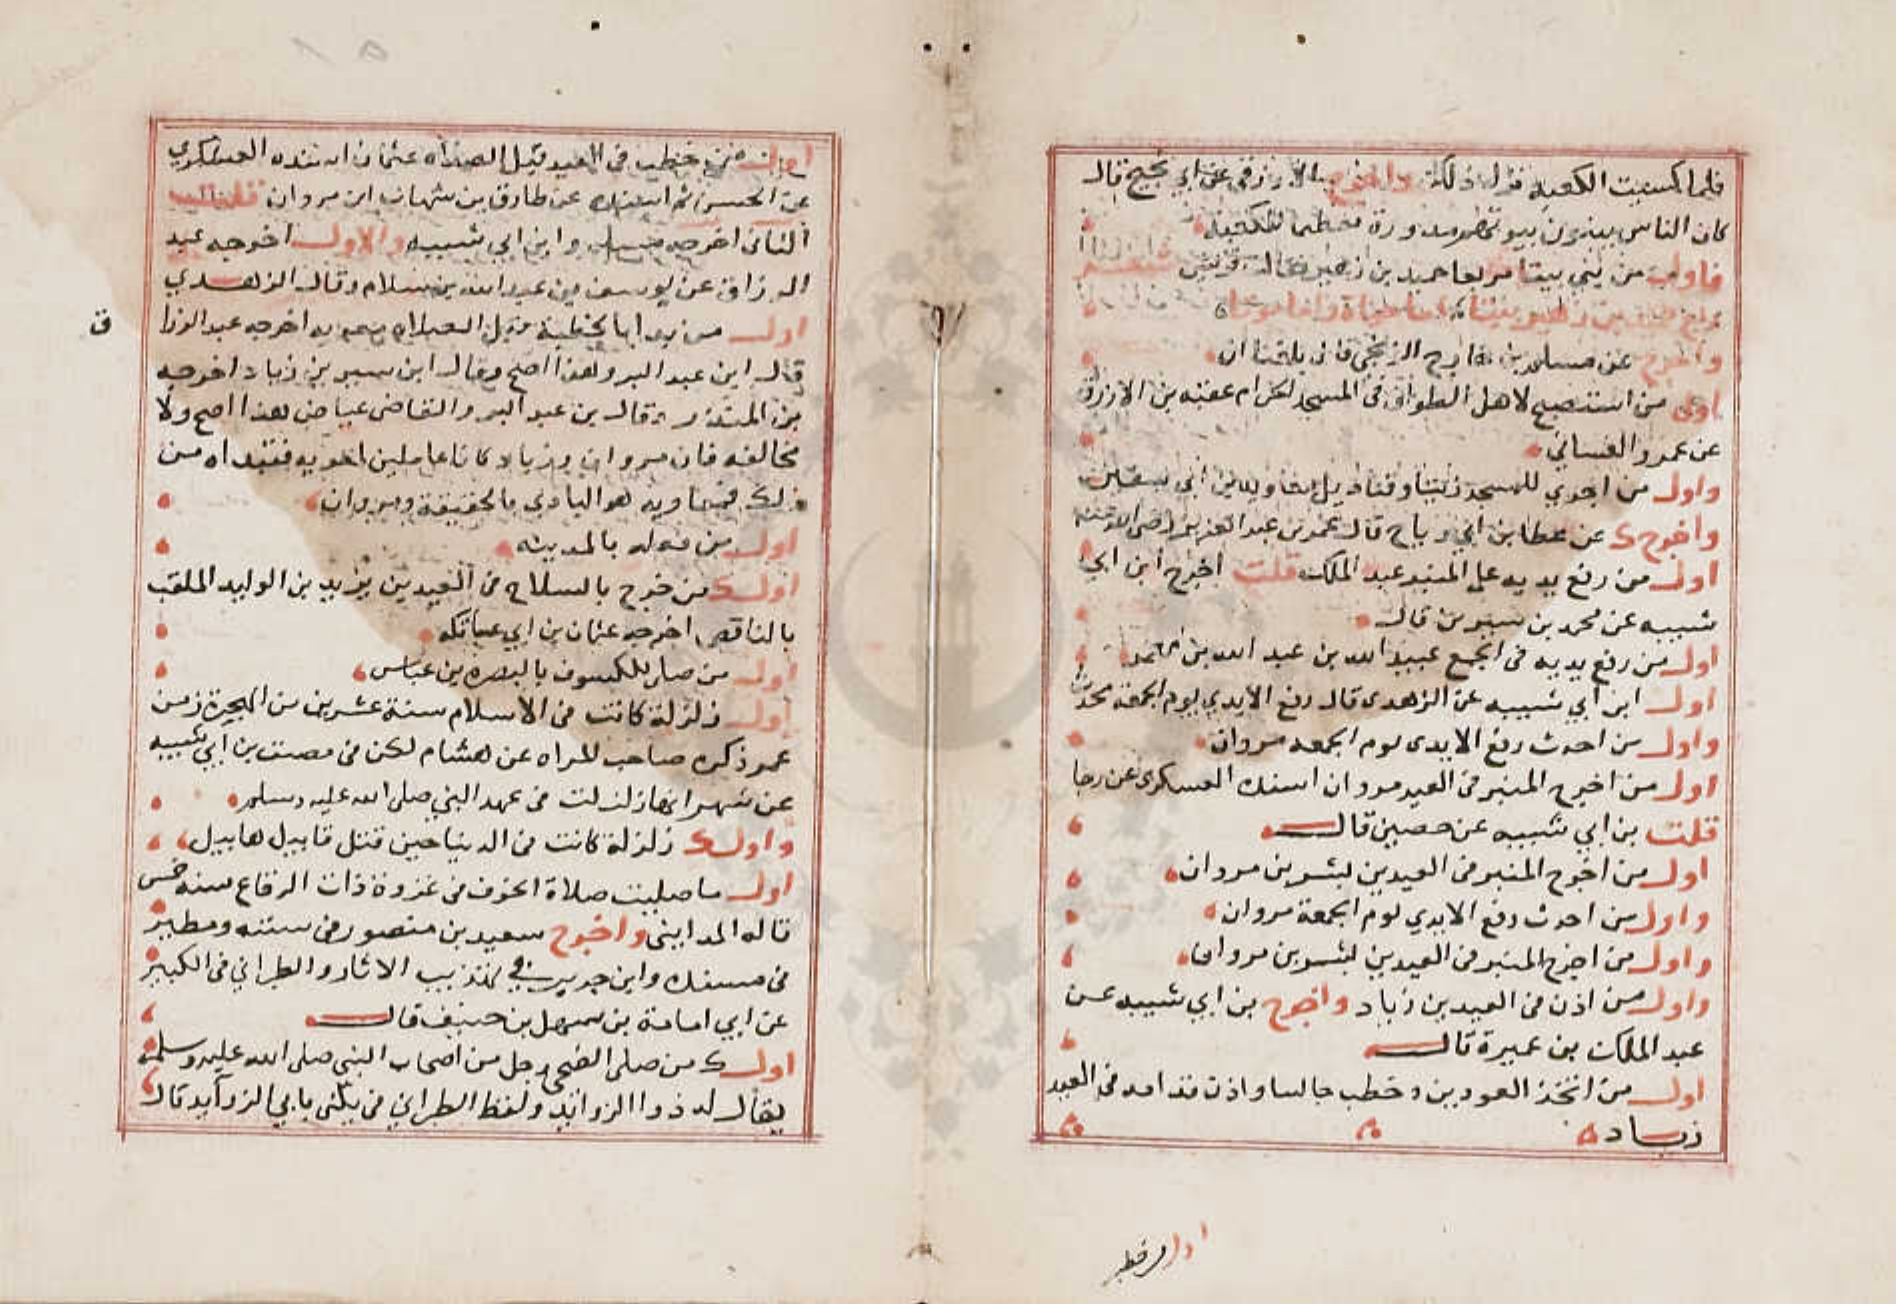 فلما كسيت الكعبة ترك ذلك واخرج الازرقي عن ابي نجيح قال
كان الناس يبنون بيوتهم مدورة تعظيما للكعبة
فاول من بني بيتا مربعا حميد بن زهير فقالت قريش
واخرج عن مسلم بن خالد الزنجي قال بلغنا ان
اول من استصبح لاهل الطواف في المسجد الحرام عقبه بن الازرق
عن عمرو الغساني
واول من اجري للمسجد زيتا وقناديل معاوية بن ابي سفيان
واخرج ك عن عطا بن ابي رباح قال عمر بن عبد العزيز رضي الله عنه
اول من رفع يديه علي المنبر عبد الملك قلت اخرج ابن ابي
شيبه عن محمد بن سيرين قال
اول من رفع يديه في الجمع عبيد الله بن عبد الله بن معمر
اول ابن ابي شيبه عن الزهدي قال رفع الايدي يوم الجمعة محدث
واول من احدث رفع الايدي يوم الجمعه مروان
اول من اخرج المنبر في العيد مروان اسنده العسكري عن رجا
قلت بن ابي شيبه عن حصين قال
اول من اخرج المنبر في العيدين بشر بن مروان
واول من احدث رفع الايدي يوم الجمعة مروان
واول من اخرج المنبر في العيدين بشر بن مروان
واول من اذن في العيدين زياد واخرج بن ابي شيبه عن
عبد الملك بن عميرة قال
اول من اتخذ العودين وخطب جالسا واذن قدامه في العيد
زياد
اول من خطب
اول من خطب في العيد قبل الصلاه عثمان اسنده العسكري
عن الحسن ثم اسنده عن طارق بن شهاب ابن مروان قلت
الثاني اخرجه وابن ابي شيبه والاول اخرجه عبد
الرزاق عن يوسف بن عبد الله بن سلام وقال الزهدي
اول من بدا بالخطبة قبل الصلاه معويه اخرجه عبد الرزا
ق
قال ابن عبد البر وهذا اصح وقال ابن سيرين زياد اخرجه
بن المنذر قال بن عبد البر والقاضي عياض هذا اصح ولا
مخالفه فان مروان وزياد كانا عاملين لمعويه فقتداه من
ذلك فمعاويه هو البادي بالحقيقة ومروان
اول من فعله بالمدينه
اول ك من خرج بالسلاح في العيدين يزيد بن الوليد الملقب
بالناقص اخرجه عثمان بن ابي عياتكه
اول من صلي للكسوف بالبصره بن عباس
اول زلزلة كانت في الاسلام سنة عشرين من الهجرة زمن
عمر ذكره صاحب المراه عن هشام لكن في مصنف بن ابي شيبه
عن شهر انها زلزلت في عهد النبي صلي الله عليه وسلم
واول ك زلزلة كانت في الدنيا حين قتل قابيل هابيل
اول ما صليت صلاة الخوف في غزوة ذات الرقاع سنه خمس
قاله المدايني واخرج سعيد بن منصور في سننه ومطير
في مسنده وابن جرير في تهذيب الاثار والطبراني في الكبير
عن ابي امامة بن سهل بن حنيف قال
اول ك من صلي الضحي رجل من اصحاب النبي صلي الله عليه وسلم
يقال له ذوا الزوايد ولفظ الطبراني في يكني بابي الزوايد قال